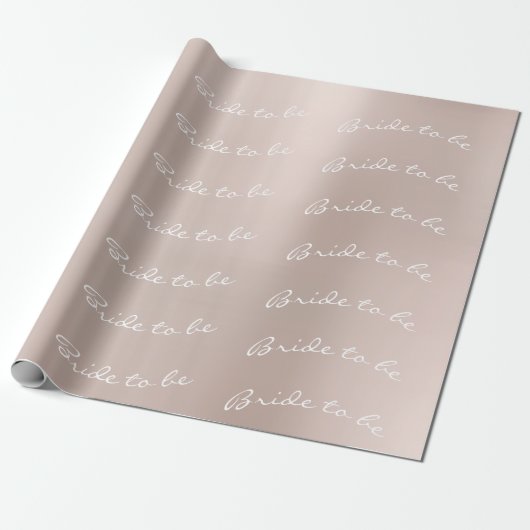 Bride to be
Bride to be
Bride to be
Bride to be
Bride to be
Bride to be
Bride to be
Bride to be
Bride to be
Bride to be
Bride to be
Bride to be
Bride to be
Bride to be